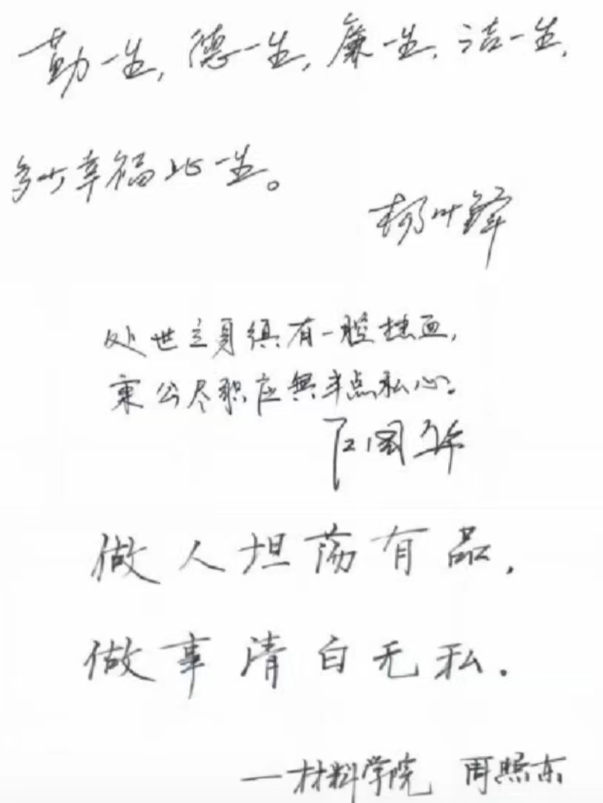 勤一生，德一生，廉一生，洁一生，
多少幸福此一生。
杨叶锋
处世立身须有一腔热血，
秉公尽职应無半点私心。
国华
做人坦荡有品，
做事清白无私.
—材料学院 周照东